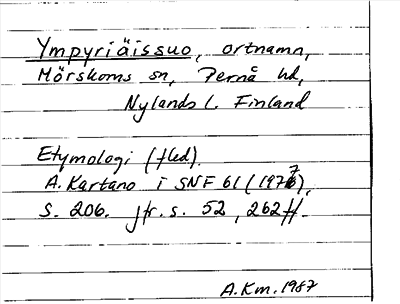 Ympyriäissuo, ortnamn,
Mörskoms sn, Pernå hd,
Nylands l. Finland
Etymologi (fled).
A. Kartano i SNF 61 (1977),
s. 206. jfr. s. 52, 262 ff.
A.Km. 1987